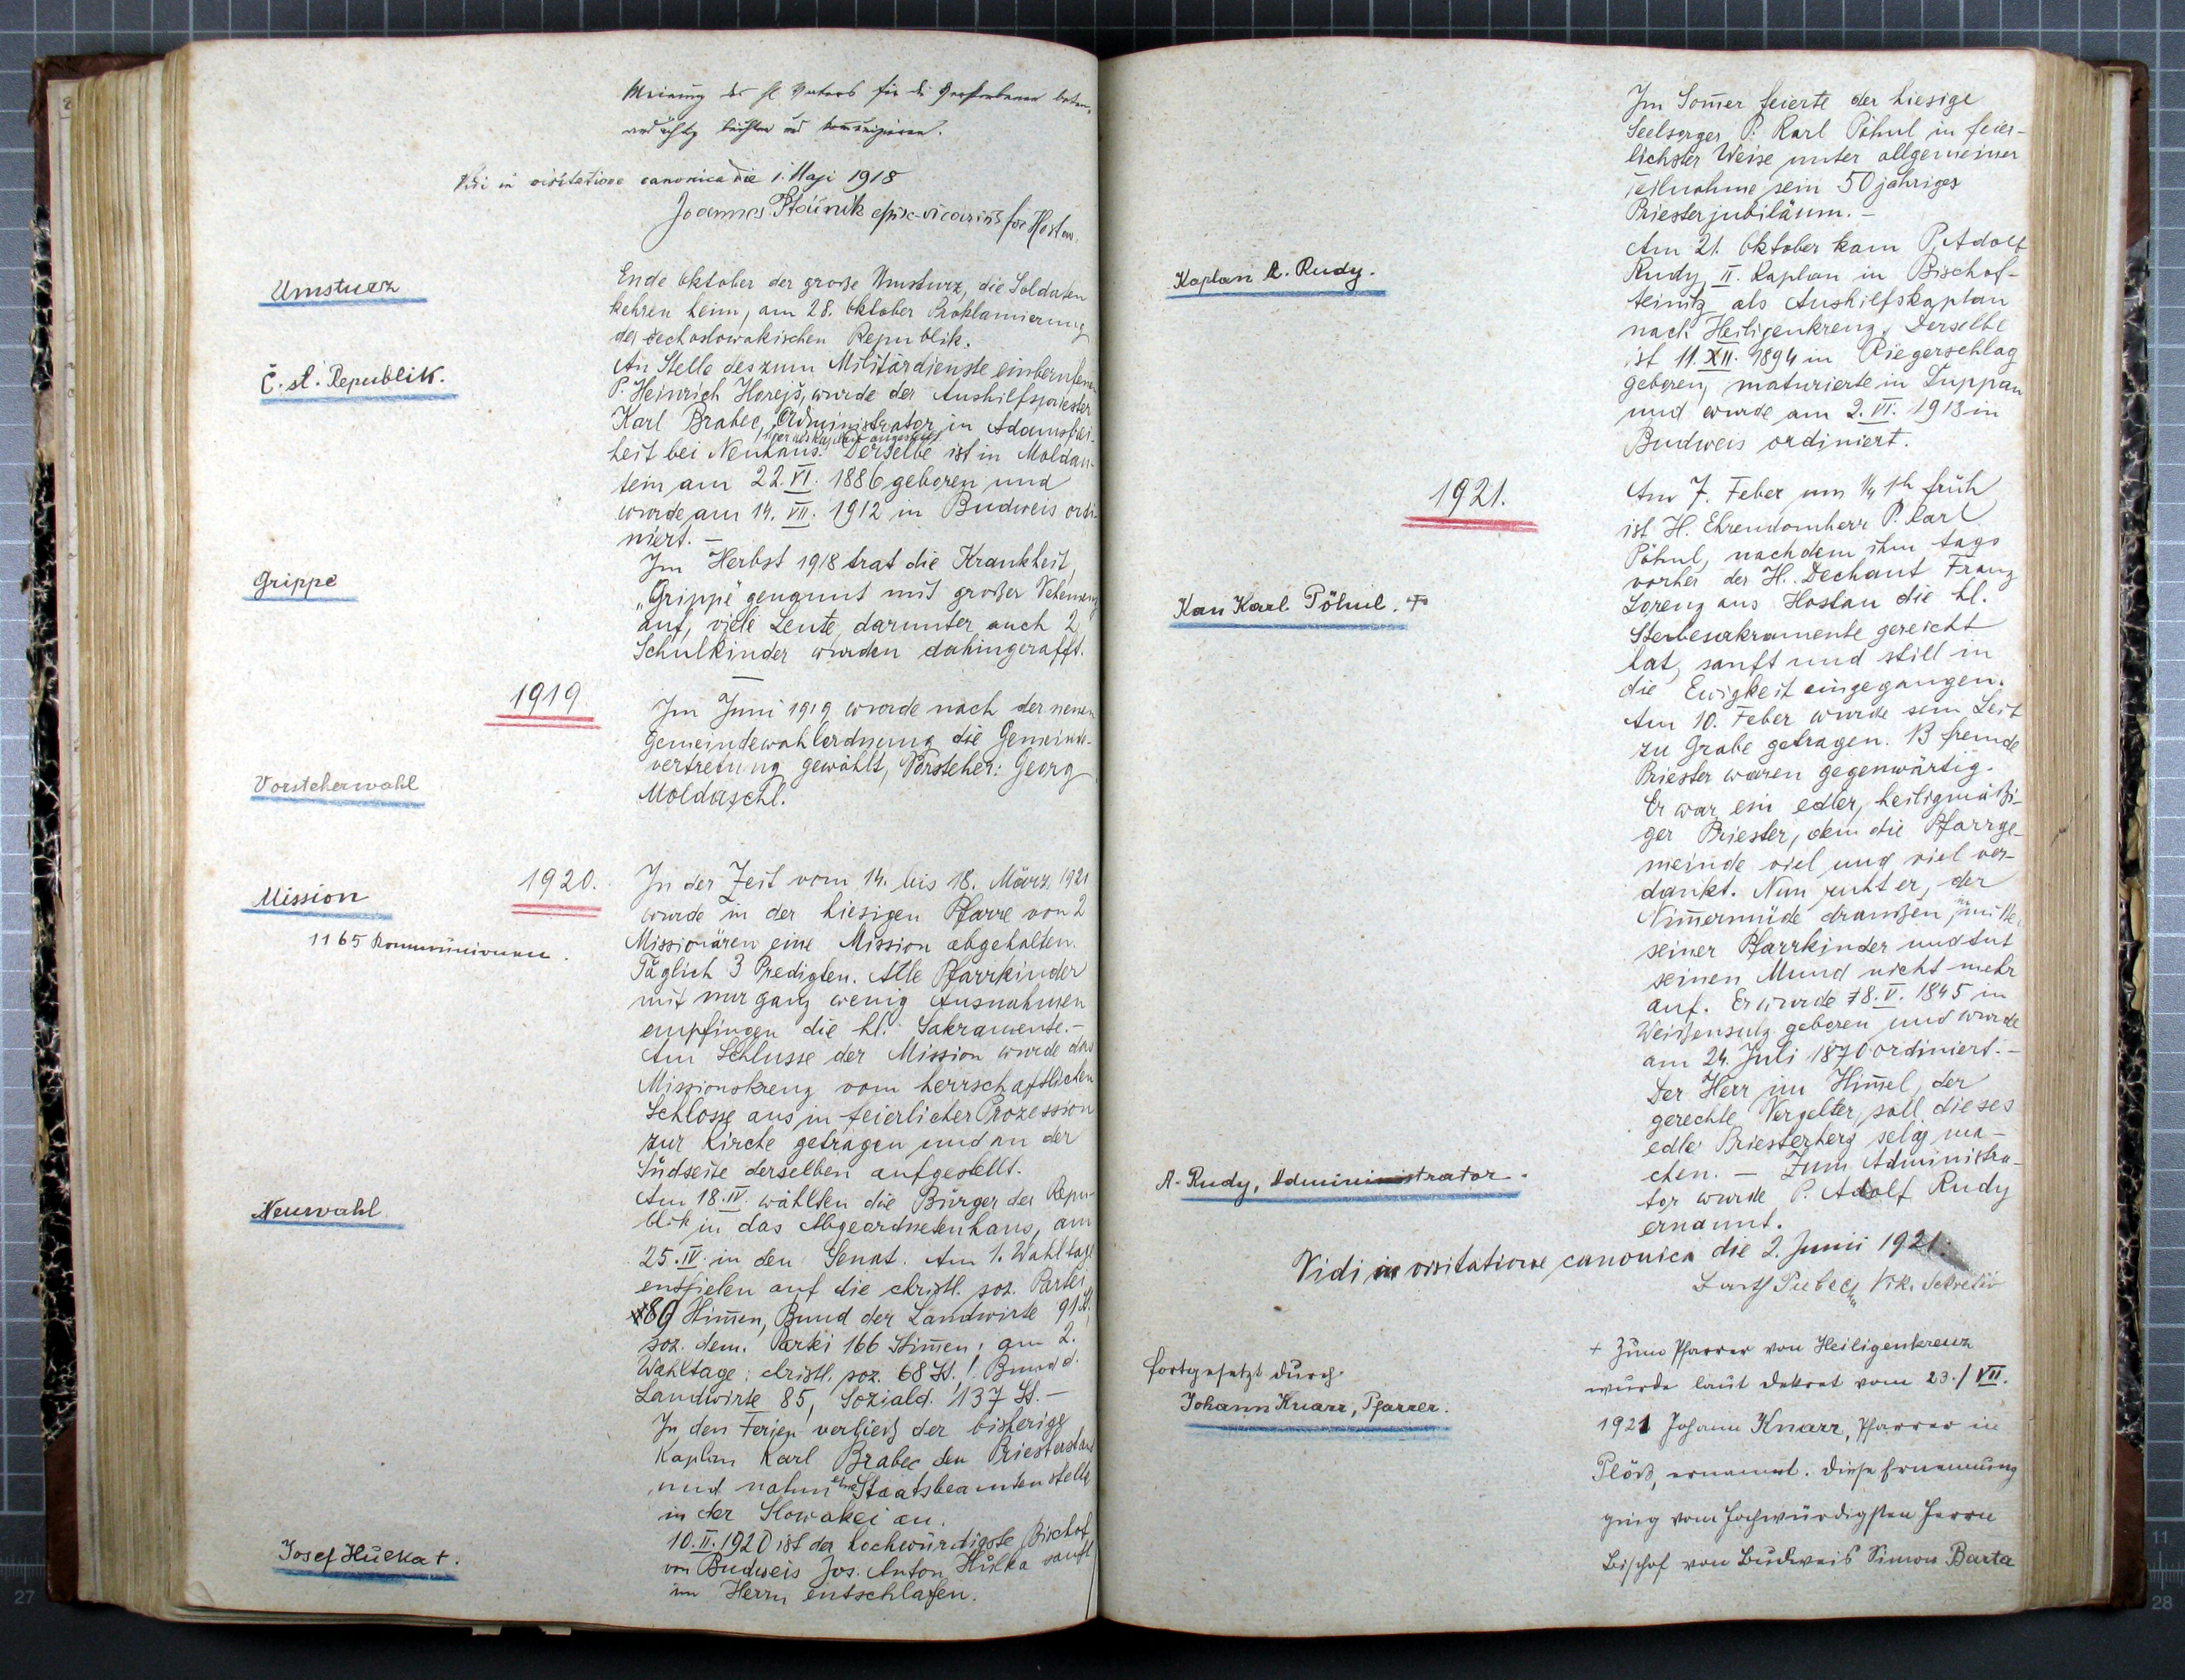 Meinung des hl. Vaters für die Verstorbenen beten,
andächtig beichten und kommunizieren.
Vidi in visitatione canonica die 1. Maji 1918
Joannes
Umsturz
Ende Oktober der große Umsturz, die Soldaten
kehren heim, am 28. Oktober Proklamierung
der čechoslowakischen Republik.
Č. sl. Republik.
An Stelle des zum Militärdienste einberufenen
P. Heinrich Horejš, wurde der Aushilfspriester
Karl Brabec, Administrator in Adamsfrei-
heit bei Neuhaus. Derselbe ist in Moldau-
tein am 22. VI. 1886 geboren und
wurde am 14. VII. 1912 in Budweis ordi-
niert. –
Grippe
Im Herbst 1918 trat die Krankheit,
„Grippe" genannt mit großer Vehemenz
auf, viele Leute, darunter auch 2
Schulkinder wurden dahingerafft.
1919.
Im Juni 1919 wurde nach der neuen
Gemeindewahlordnung die Gemeinde-
vertretung gewählt, Vorsteher: Georg
Moldaschl.
Vorsteherwahl
1920.
Mission
1165 Kommunionen.
In der Zeit vom 14. bis 18. März 1921
wurde in der hiesigen Pfarre von 2
Missionären eine Mission abgehalten.
Täglich 3 Predigten. Alle Pfarrkinder
mit nur ganz wenig Ausnahmen
empfingen die hl. Sakramente. –
Am Schlusse der Mission wurde das
Missionskreuz vom herrschaftlichen
Schlosse aus in feierlicher Prozession
zur Kirche getragen und an der
Südseite derselben aufgestellt.
Neuwahl
Am 18. IV. wählten die Bürger der Repu-
blik in das Abgeordnetenhaus, am
25. IV. in den Senat. Am 1. Wahltage
entfielen auf die christl. soz. Partei
80 Stim̄en, Bund der Landwirte 91 St.
soz. dem. Partei 166 Stim̄en; am 2.
Wahltage: christl. soz. 68 St., Bund d.
Landwirte 85, Soziald. 137 St. –
In den Ferien verließ der bisherige
Kaplan Karl Brabec den Priesterstand
und nahm eine Staatsbeamtenstelle
in der Slowakei an.
Josef Hůlka †.
10. II. 1920 ist der hochwürdigste Bischof
von Budweis Jos. Anton Hůlka sanft
im Herrn entschlafen.
Im Som̄er feierte der hiesige
Seelsorger P. Karl Pöhnl in feier-
lichster Weise unter allgemeiner
Teilnahme sein 50 jähriges
Priesterjubiläum. –
Kaplan A. Rudy.
Am 21. Oktober kam P. Adolf
Rudy, II. Kaplan in Bischof-
teinitz als Aushilfskaplan
nach Heiligenkreuz. Derselbe
ist 11. XII. 1894 in Riegerschlag
geboren, maturierte in Duppau
und wurde am 2. VI. 1913 in
Budweis ordiniert.
1921.
Am 7. Feber um ¼ 1h früh
ist H. Ehrendomherr P. Karl
Pöhnl, nachdem ihm tags
vorher der H. Dechant Franz
Lorenz aus Hostau die hl.
Sterbesakramente gereicht
hat, sanft und still in
die Ewigkeit eingegangen.
Kan Karl Pöhnl. †
Am 10. Feber wurde sein Leib
zu Grabe getragen. 13 fremde
Priester waren gegenwärtig.
Er war ein edler, heiligmäßi-
ger Priester, dem die Pfarrge-
meinde viel und viel ver-
dankt. Nun ruht er, der
Nim̄ermüde draußen, inmitten
seiner Pfarrkinder und tut
seinen Mund nicht mehr
auf. Er wurde 18. V. 1845 in
Weißensulz geboren und wurde
am 24. Juli 1870 ordiniert. –
Der Herr im Him̄el, der
gerechte Vergelter, soll dieses
edle Priesterherz selig ma-
chen. – Zum Administra-
tor wurde P. Adolf Rudy
ernannt.
A. Rudy, Administrator.
Vidi in visitatione canonica die 2. Junii 1921.
Vik. Sekretär
fortgesetzt durch
Johann Knarr, Pfarrer.
+ Zum Pfarrer von Heiligenkreuz
wurde laut Dekret vom 23./VII.
1921 Johann Knarr, Pfarrer in
Plöß, ernannt. Diese Ernennung
ging vom hochwürdigsten Herrn
Bischof von Budweis Simon Barta
27
11
28